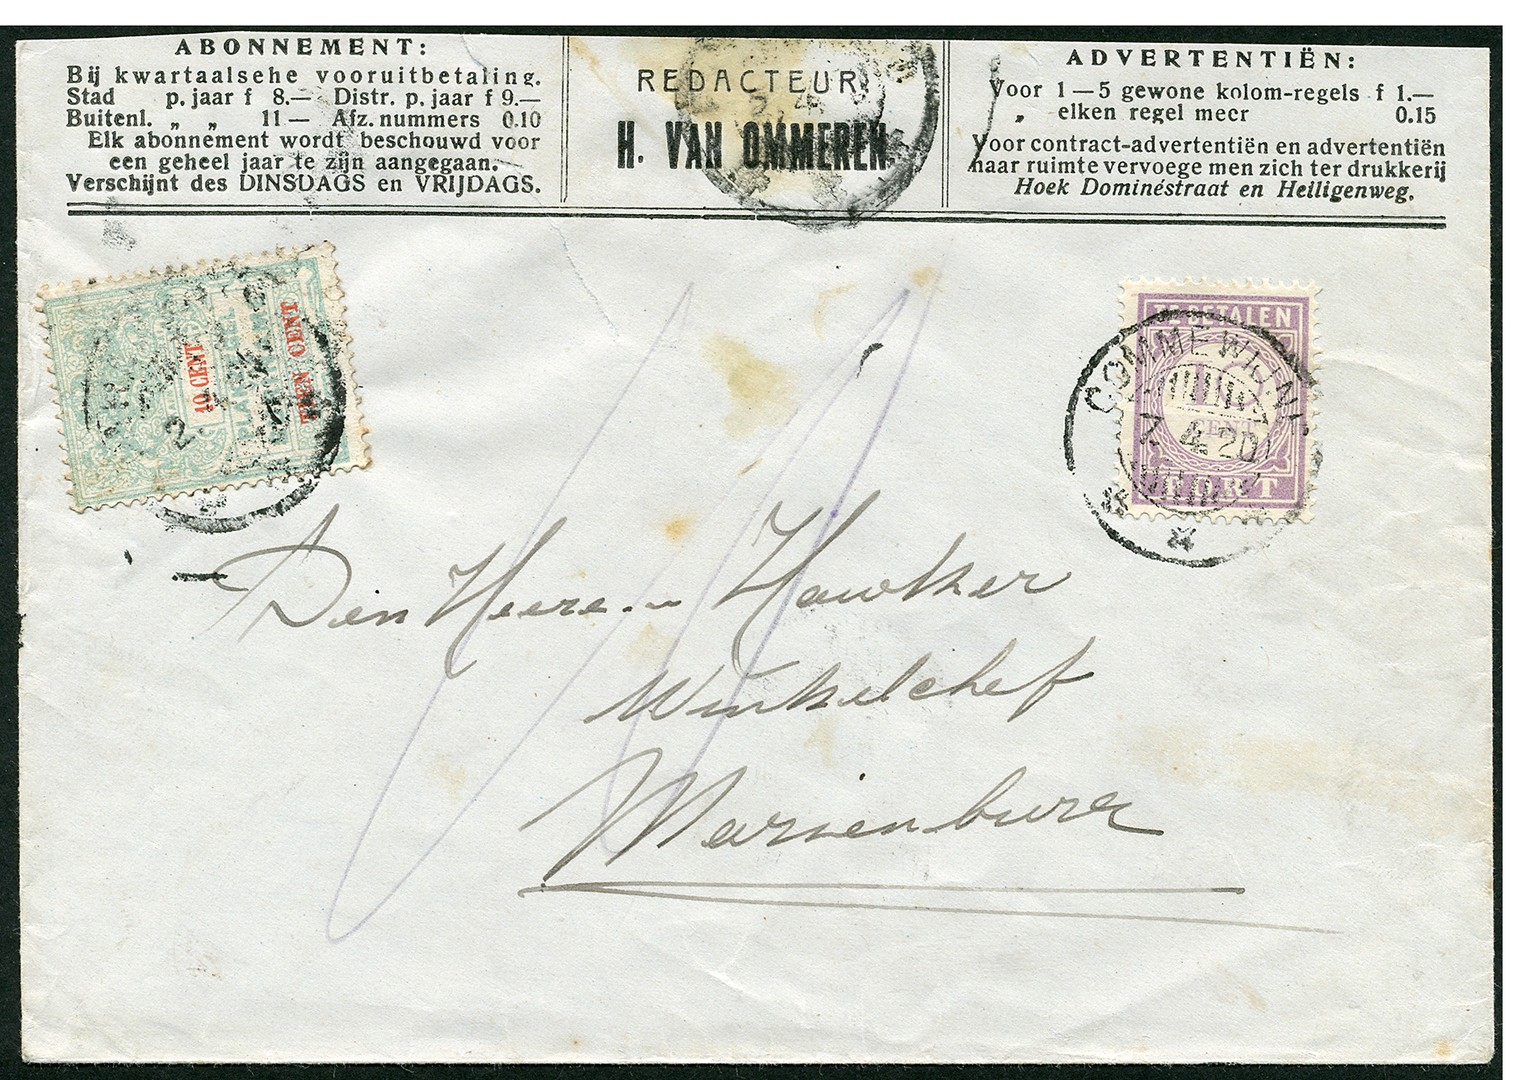 ABONNEMENT:
Bij kwartaalsche vooruitbetaling.
Stad p. jaar f 8.— Distr. p. jaar f 9.—
Buitenl. „ „ 11 — Afz. nummers 0.10
Elk abonnement wordt beschouwd voor
een geheel jaar te zijn aangegaan.
Verschijnt des DINSDAGS en VRIJDAGS.
REDACTEUR
H. VAN OMMEREN.
ADVERTENTIËN:
Voor 1 — 5 gewone kolom-regels f 1.—
„ elken regel meer 0.15
Voor contract-advertentiën en advertentiën
naar ruimte vervoege men zich ter drukkerij
Hoek Dominéstraat en Heiligenweg.
10 CENT
TIEN CENT
TE BETALEN
10
CENT
PORT
COMMEWIJNE
2 4 20
Den Heere
Winkelchef
Marienburg